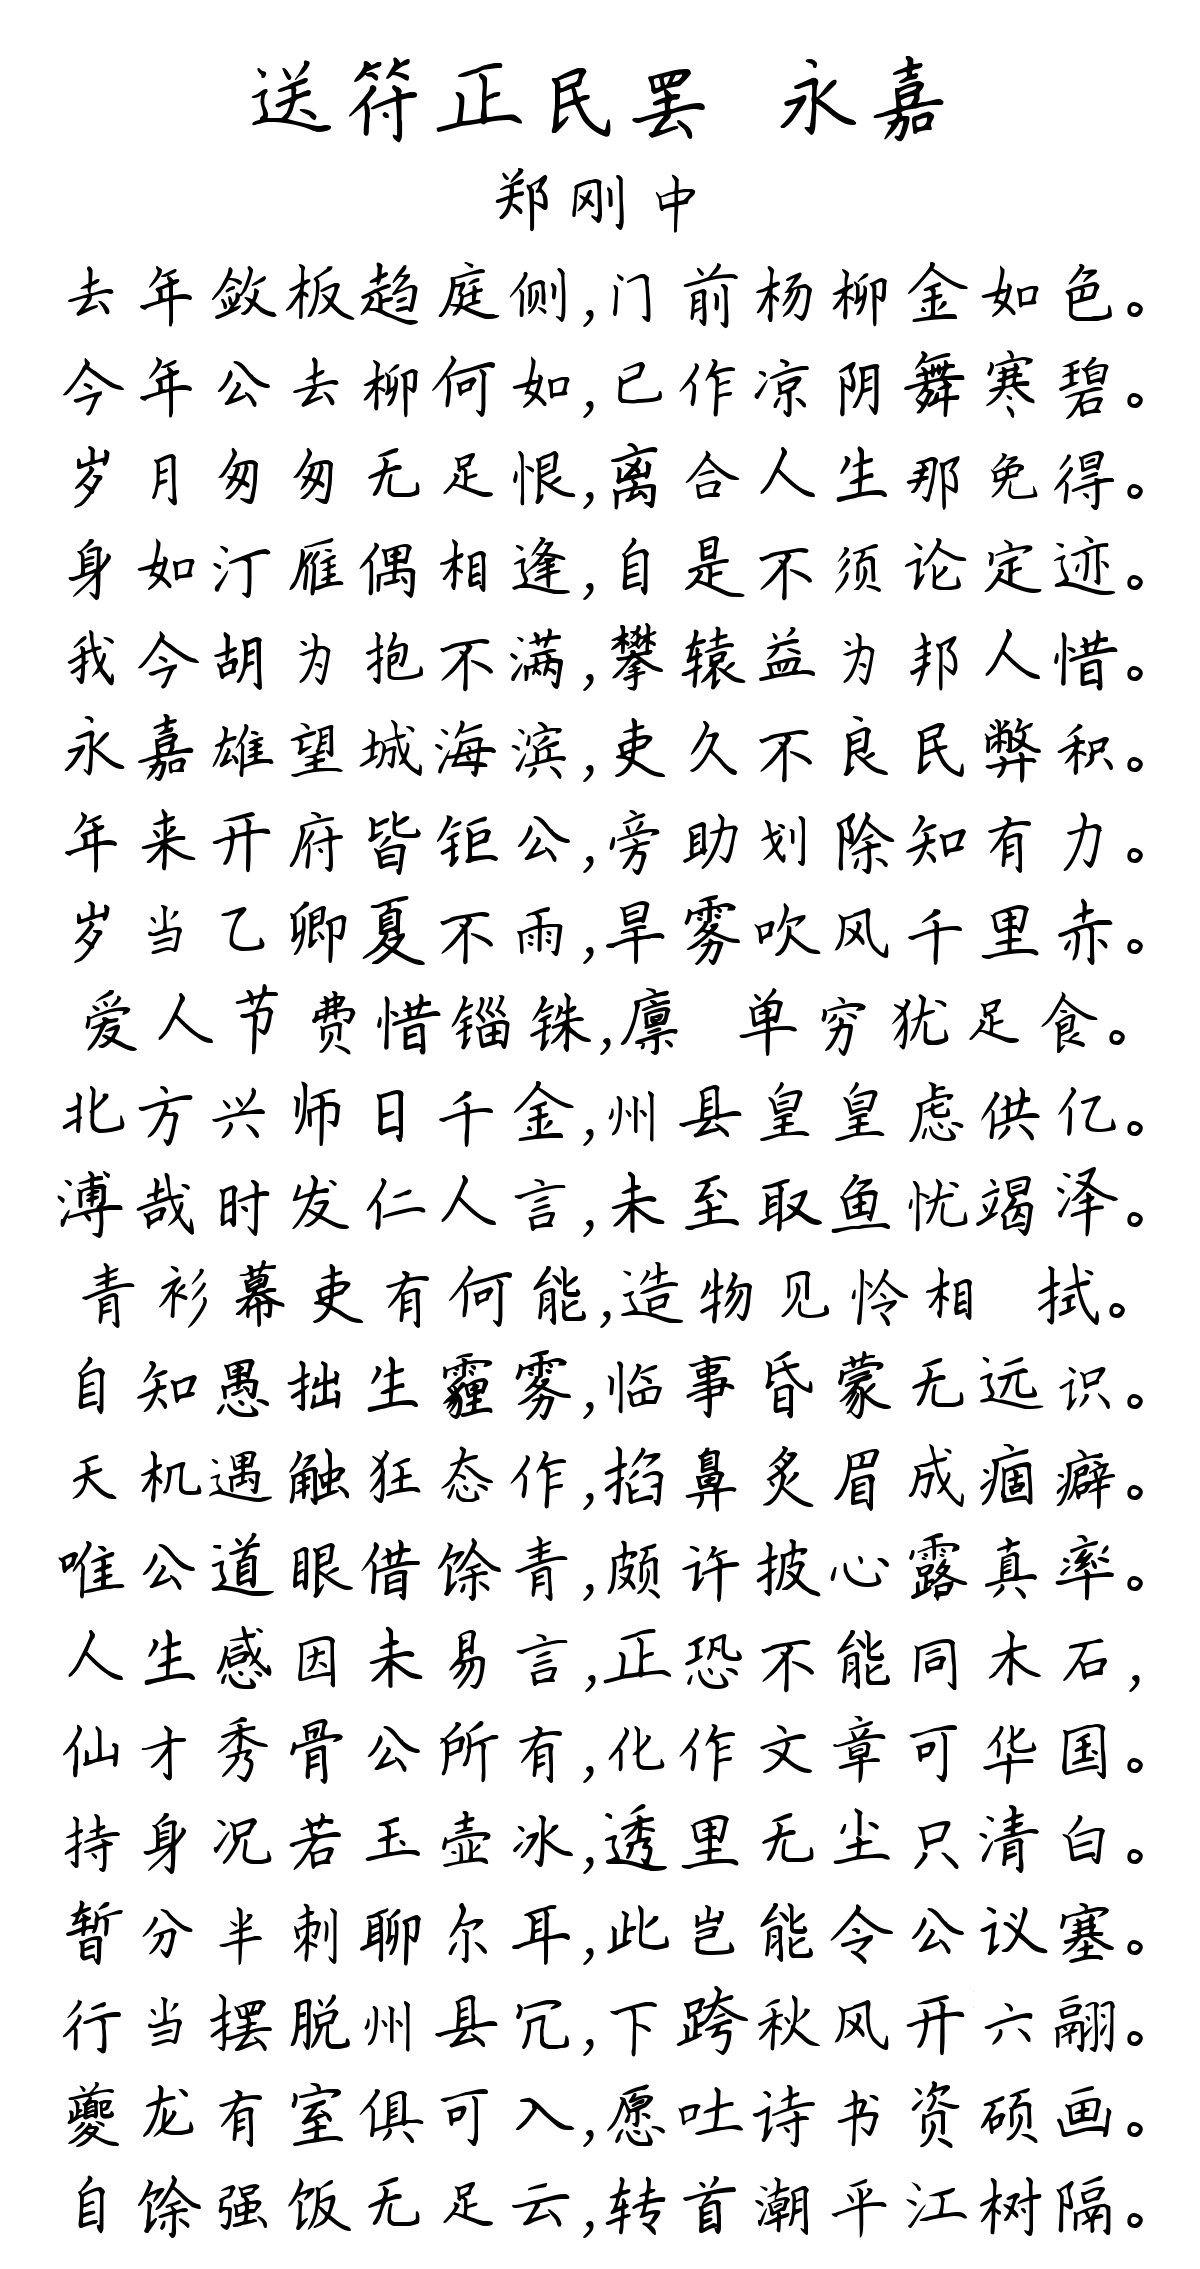 送符正民罢 永嘉
郑刚中
去年敛板趋庭侧,门前杨柳金如色。
今年公去柳何如,已作凉阴舞寒碧。
岁月匆匆无足恨,离合人生那免得。
身如汀雁偶相逢,自是不须论定迹。
我今胡为抱不满,攀辕益为邦人惜。
永嘉雄望城海滨,吏久不良民弊积。
年来开府皆钜公,旁助划除知有力。
岁当乙卿夏不雨,旱雾吹风千里赤。
爱人节费惜锱铢,廪 单穷犹足食。
北方兴师日千金,州县皇皇虑供亿。
溥哉时发仁人言,未至取鱼忧竭泽。
青衫幕吏有何能,造物见怜相 拭。
自知愚拙生霾雾,临事昏蒙无远识。
天机遇触狂态作,掐鼻炙眉成痼癖。
唯公道眼借馀青,颇许披心露真率。
人生感因未易言,正恐不能同木石,
仙才秀骨公所有,化作文章可华国。
持身况若玉壶冰,透里无尘只清白。
暂分半刺聊尔耳,此岂能令公议塞。
行当摆脱州县冗,下跨秋风开六翮。
夔龙有室俱可入,愿吐诗书资硕画。
自馀强饭无足云,转首潮平江树隔。